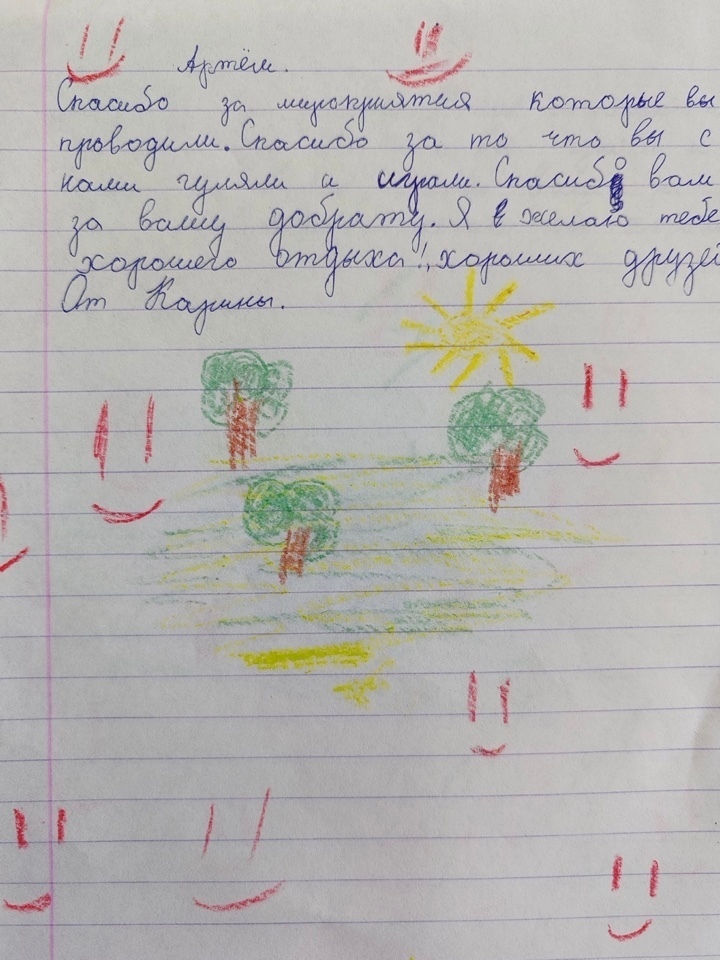 Артём.
Спасибо за мироприятия которые вы
проводили. Спасибо за то что вы с
нами гуляли и играли. Спасибо вам
за вашу доброту. Я желаю тебе
хорошего отдыха!, хороших друзей
От Карины.